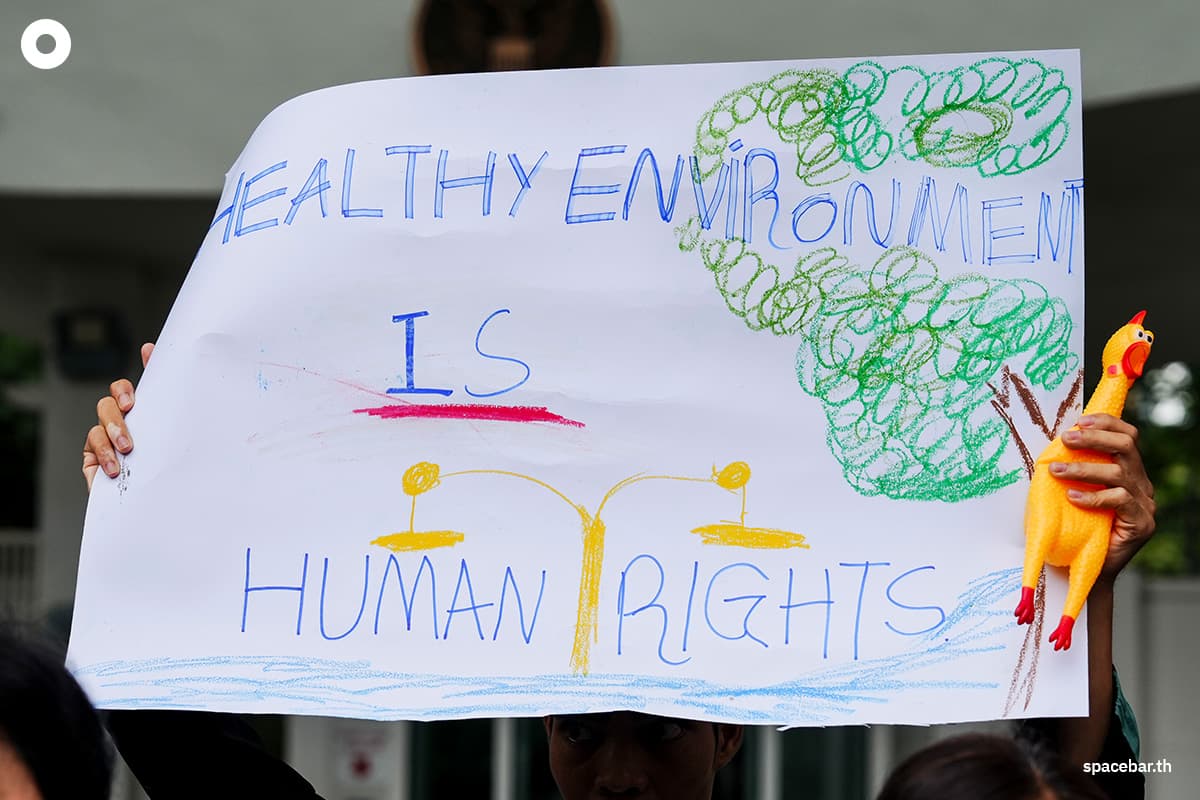 HEALTHY ENVIRONMENT
IS
HUMAN RIGHTS
spacebar.th